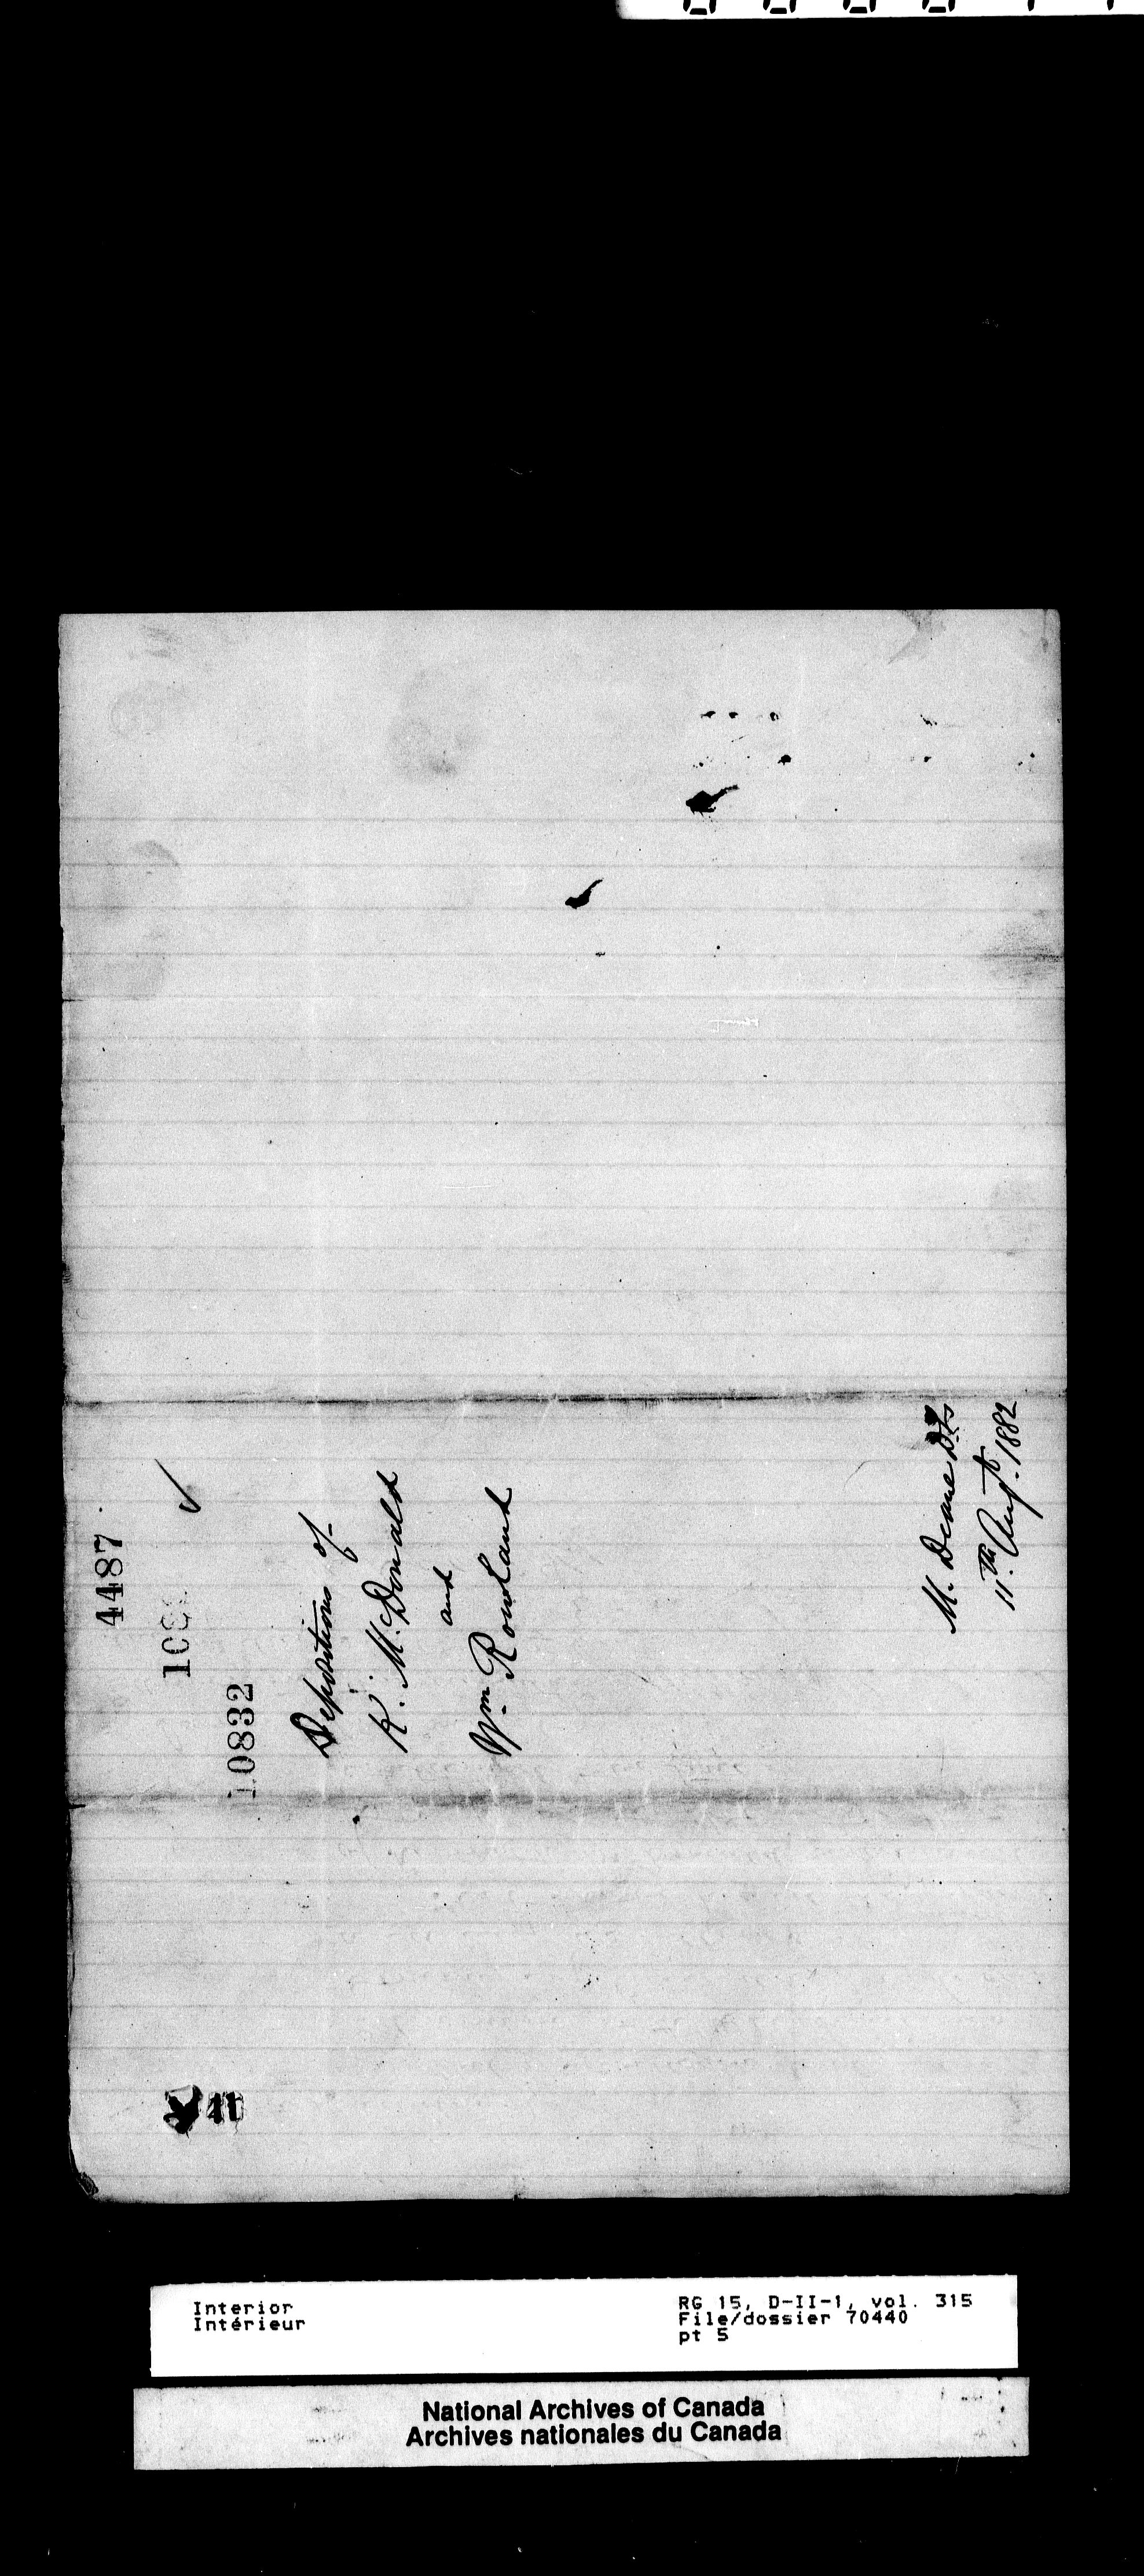 4487
10832
Depositions of
K. McDonald
and
Wm Rowland
M. Deane DLS
11th Augt. 1882
Interior
Intérieur
RG 15, D-II-1, vol. 315
File/dossier 70440
pt 5
National Archives of Canada
Archives nationales du Canada